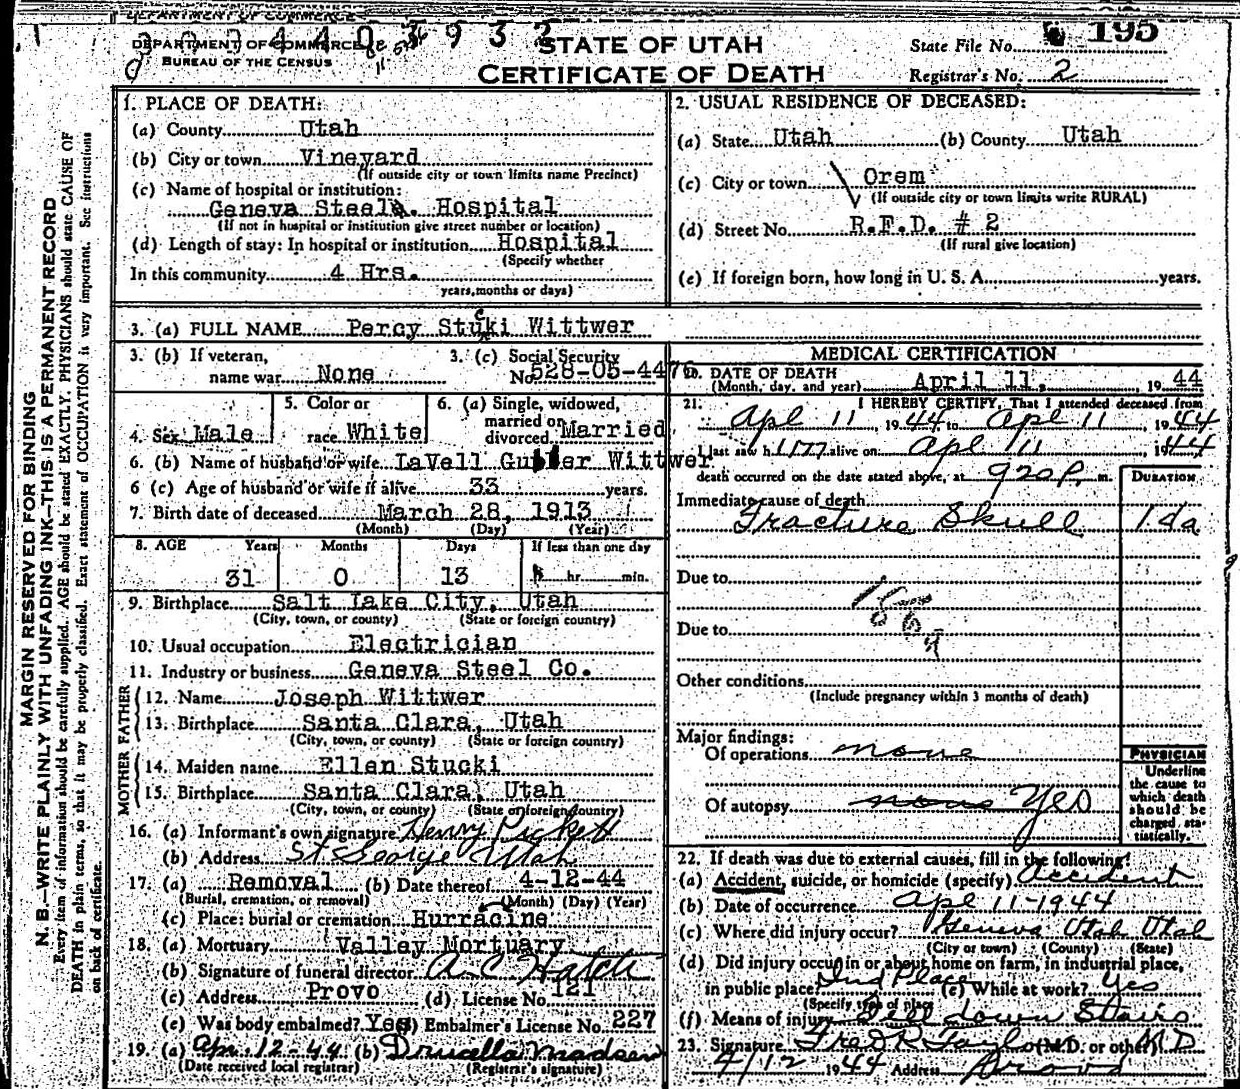 DEPARTMENT OF COMMERCE
BUREAU OF THE CENSUS
STATE OF UTAH
CERTIFICATE OF DEATH
State File No. 195
Registrar's No. 2
MARGIN RESERVED FOR BINDING
N. B.—WRITE PLAINLY WITH UNFADING INK—THIS IS A PERMANENT RECORD
Every item of information should be carefully supplied. AGE should be stated EXACTLY. PHYSICIANS should state CAUSE OF
DEATH in plain terms, so that it may be properly classified. Exact statement of OCCUPATION is very important. See instructions
on back of certificate.
1. PLACE OF DEATH:
(a) County Utah
(b) City or town Vineyard
(If outside city or town limits name Precinct)
(c) Name of hospital or institution:
Geneva Steel. Hospital
(If not in hospital or institution give street number or location)
(d) Length of stay: In hospital or institution Hospital
(Specify whether
In this community 4 Hrs.
years, months or days)
2. USUAL RESIDENCE OF DECEASED:
(a) State Utah (b) County Utah
(c) City or town Orem
(If outside city or town limits write RURAL)
(d) Street No. R.F.D. # 2
(If rural give location)
(e) If foreign born, how long in U. S. A. years.
3. (a) FULL NAME Percy Stucki Wittwer
3. (b) If veteran, name war None
3. (c) Social Security No. 528-05-4476
4. Sex Male
5. Color or race White
6. (a) Single, widowed, married or divorced Married
6. (b) Name of husband or wife LaVell Gubler Wittwer
6 (c) Age of husband or wife if alive 33 years.
7. Birth date of deceased March 28, 1913
(Month) (Day) (Year)
8. AGE Years Months Days If less than one day
31 0 13 hr. min.
9. Birthplace Salt Lake City, Utah
(City, town, or county) (State or foreign country)
10. Usual occupation Electrician
11. Industry or business Geneva Steel Co.
FATHER
12. Name Joseph Wittwer
13. Birthplace Santa Clara, Utah
(City, town, or county) (State or foreign country)
MOTHER
14. Maiden name Ellen Stucki
15. Birthplace Santa Clara, Utah
(City, town, or county) (State or foreign country)
16. (a) Informant's own signature Henry Pickett
(b) Address St George Utah
17. (a) Removal (b) Date thereof 4-12-44
(Burial, cremation, or removal) (Month) (Day) (Year)
(c) Place: burial or cremation Hurracine
18. (a) Mortuary Valley Mortuary
(b) Signature of funeral director A C Hatch
(c) Address Provo (d) License No. 121
(e) Was body embalmed? Yes) Embalmer's License No. 227
19. (a) Apr. 12-44 (b) Drucella Madsen
(Date received local registrar) (Registrar's signature)
MEDICAL CERTIFICATION
20. DATE OF DEATH
(Month, day, and year) April 11, 1944
21. I HEREBY CERTIFY, That I attended deceased from
Apl 11, 1944 to Apl 11, 1944
I last saw him alive on Apl 11 1944
death occurred on the date stated above, at 920 P. m.
DURATION
Immediate cause of death
Fracture Skull 1 da
Due to
Due to
Other conditions
(Include pregnancy within 3 months of death)
Major findings:
Of operations none
Of autopsy none Yes
PHYSICIAN
Underline the cause to which death should be charged statistically.
22. If death was due to external causes, fill in the following:
(a) Accident, suicide, or homicide (specify) Accident
(b) Date of occurrence Apl 11-1944
(c) Where did injury occur? Geneva Utah Utah
(City or town) (County) (State)
(d) Did injury occur in or about home on farm, in industrial place,
in public place? Ind Place (e) While at work? Yes
(Specify type of place)
(f) Means of injury Fell down Stairs
23. Signature Fred R Taylor (M.D. or other) M D
4/12 1944 Address Provo